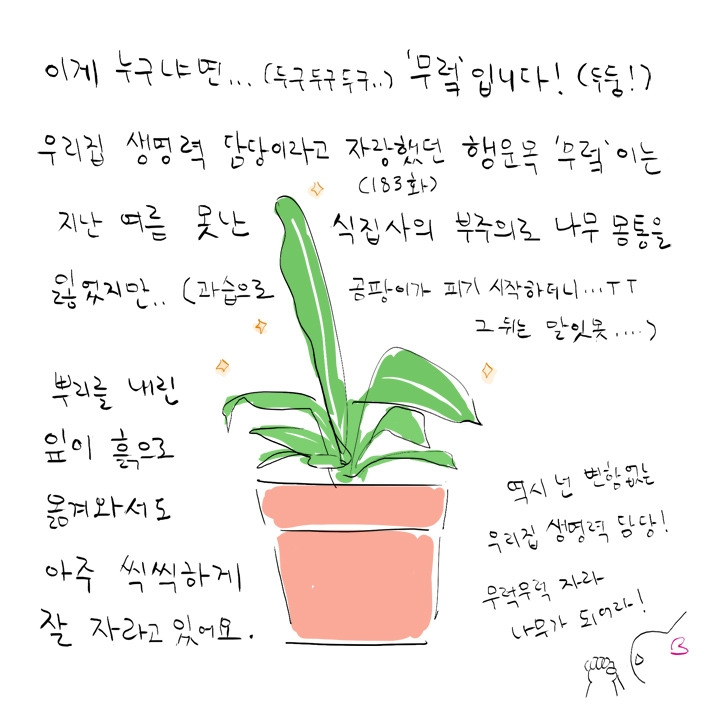 이게 누구냐면... (두구두구두구..) '무럭'입니다! (두둥!)
우리집 생명력 담당이라고 자랑했던 행운목 '무럭'이는
(183화)
지난 여름 못난 식집사의 부주의로 나무 몸통을
잃었지만.. (과습으로 곰팡이가 피기 시작하더니...ㅜㅜ
그 뒤는 말잇못....)
뿌리를 내린
잎이 흙으로
옮겨와서도
아주 씩씩하게
잘 자라고 있어요.
역시 넌 변함없는
우리집 생명력 담당!
무럭무럭 자라
나무가 되어라!